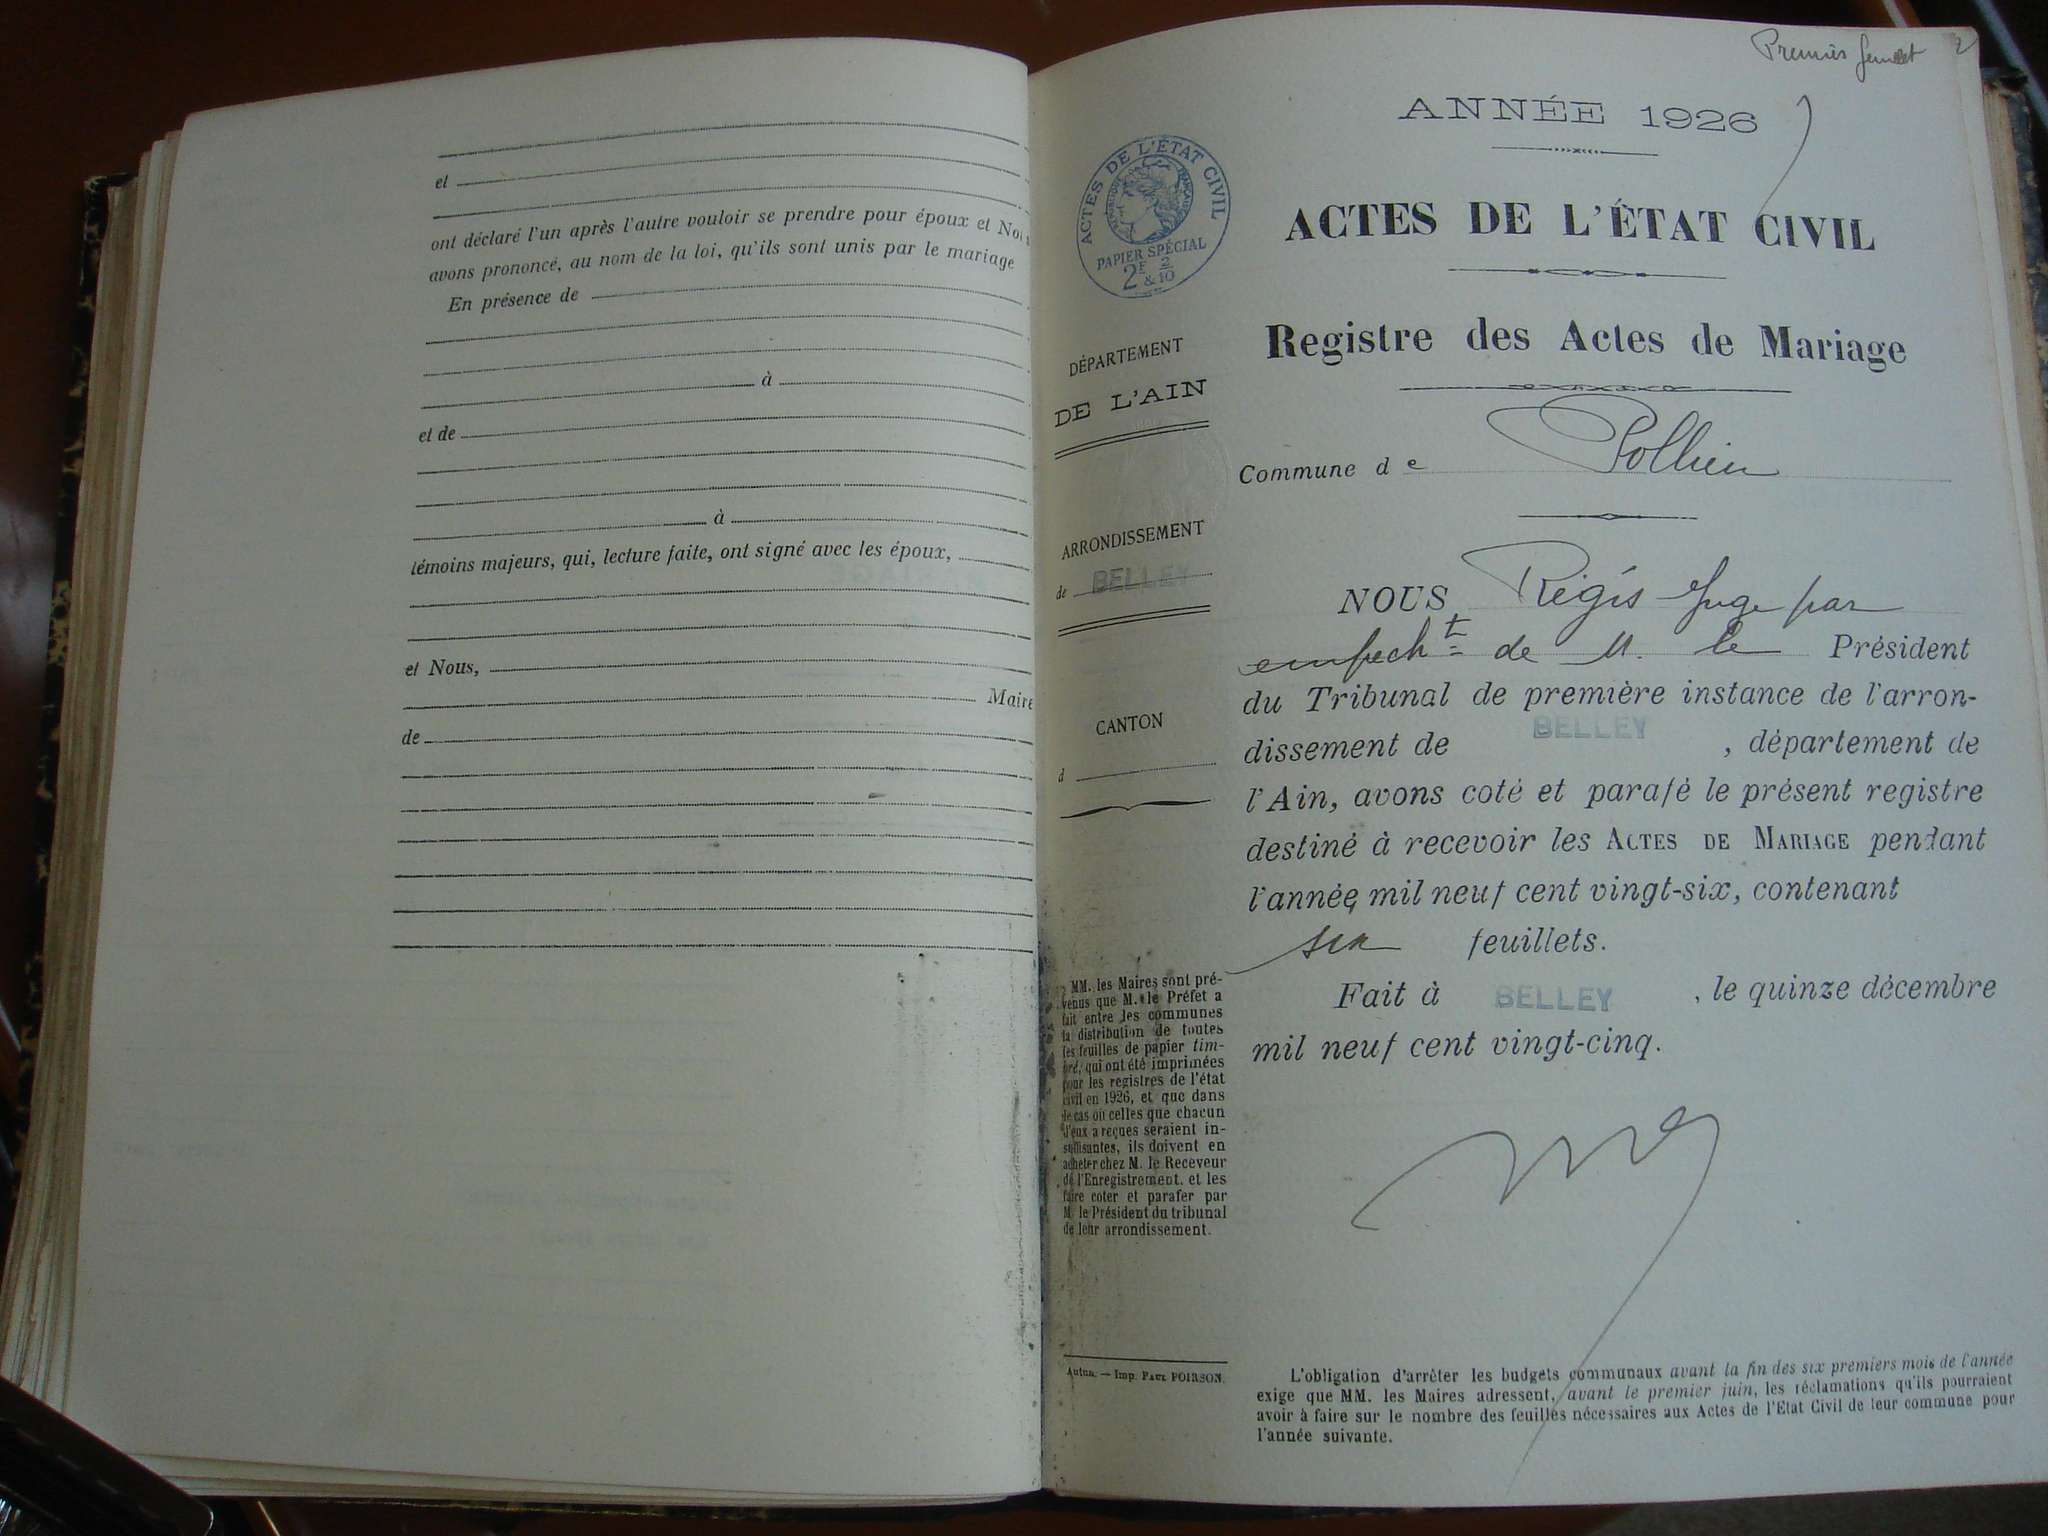 et
ont déclaré l'un après l'autre vouloir se prendre pour époux et Nous
avons prononcé, au nom de la loi, qu'ils sont unis par le mariage
En présence de
à
et de
à
témoins majeurs, qui, lecture faite, ont signé avec les époux,
et Nous,
Maire
de
Premier feuillet
ANNÉE 1926
ACTES DE L'ÉTAT CIVIL
RÉPUBLIQUE FRANÇAISE
PAPIER SPÉCIAL
2F 2
& 10
ACTES DE L'ÉTAT CIVIL
Registre des Actes de Mariage
DÉPARTEMENT
DE L'AIN
Commune de Pollieu
ARRONDISSEMENT
de BELLEY
CANTON
d
NOUS, Régis Juge par
empecht de M. le Président
du Tribunal de première instance de l'arron-
dissement de BELLEY, département de
l'Ain, avons coté et parafé le présent registre
destiné à recevoir les ACTES DE MARIAGE pendant
l'année mil neuf cent vingt-six, contenant
six feuillets.
Fait à BELLEY, le quinze décembre
mil neuf cent vingt-cinq.
MM. les Maires sont pré-
venus que M. le Préfet a
fait entre les communes
la distribution de toutes
les feuilles de papier tim-
bré, qui ont été imprimées
pour les registres de l'état
civil en 1926, et que dans
le cas où celles que chacun
d'eux a reçues seraient in-
suffisantes, ils doivent en
acheter chez M. le Receveur
de l'Enregistrement. et les
faire coter et parafer par
M. le Président du tribunal
de leur arrondissement.
Autun. — Imp. PAUL POIRSON.
L'obligation d'arrêter les budgets communaux avant la fin des six premiers mois de l'année
exige que MM. les Maires adressent, avant le premier juin, les réclamations qu'ils pourraient
avoir à faire sur le nombre des feuilles nécessaires aux Actes de l'Etat Civil de leur commune pour
l'année suivante.